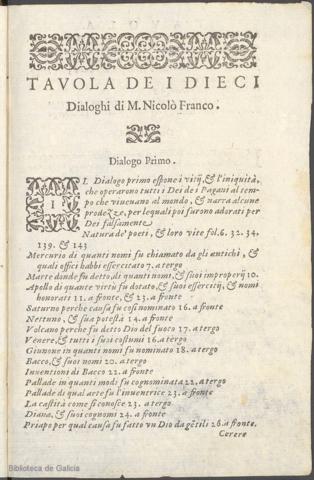 TAVOLA DE I DIECI
Dialoghi di M. Nicolò Franco.
Dialogo Primo.
IL Dialogo primo espone i vitij, & l'iniquità,
che operarono tutti i Dei de i Pagani al tem-
po che viueuano al mondo, & narra alcune
prodezze, per lequali poi furono adorati per
Dei falsamente
Natura de' poeti, & loro vite fol. 6. 32. 34.
139. & 143
Mercurio di quanti nomi fu chiamato da gli antichi, &
quali offici habbi essercitato 7. a tergo
Marte donde fu detto, di quanti nomi, & suoi improperij 10.
Apollo di quante virtù fu dotato, & suoi essercitij, & nomi
honorati 11. a fronte, & 23. a fronte
Saturno perche causa fu così nominato 16. a fronte
Nettuno, & sua potestà 14. a fronte
Volcano perche fu detto Dio del fuoco 17. a tergo
Venere, & tutti i suoi costumi 16. a tergo
Giunone in quanti nomi fu nominato 18. a tergo
Bacco, & suoi nomi 20. a tergo
Inuentioni di Bacco 22. a fronte
Pallade in quanti modi fu cognominata 22. a tergo
Pallade di qual arte fu l'inuentrice 23. a fronte
La castità come si conosce 23. a tergo
Diana, & suoi cognomi 24. a fronte
Priapo per qual causa fu fatto vn Dio da gẽtili 26. a fronte.
Cerere
Biblioteca de Galicia